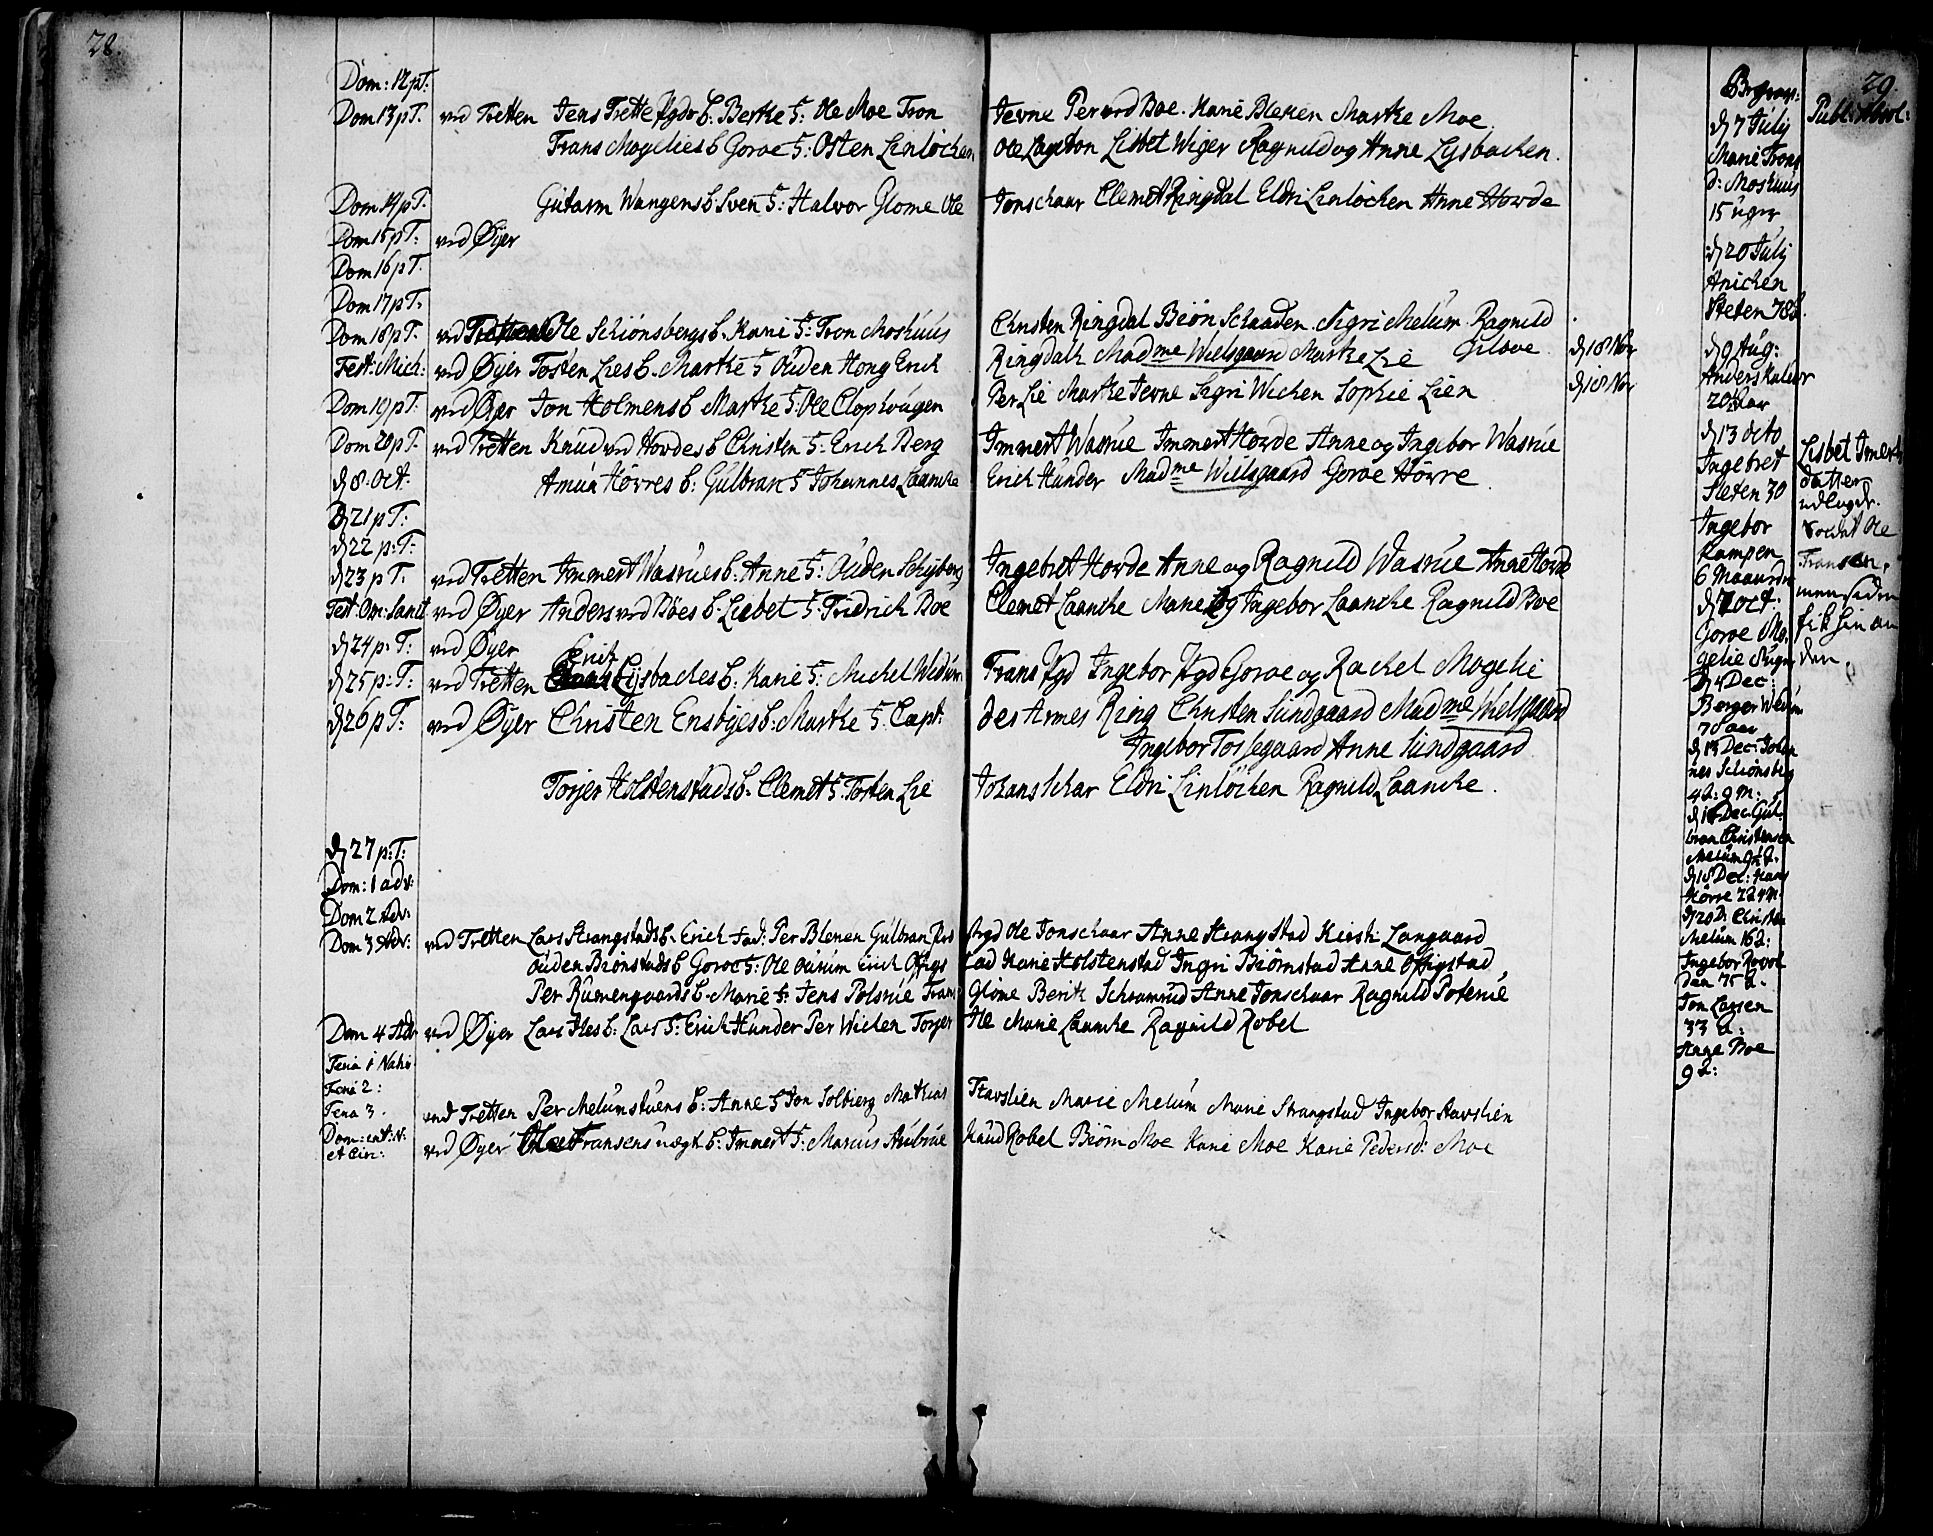 28.
Dom: 12 p T:
Dom 13 p T. ved Tretten Jens Trette Pgdr b: Berthe F: Ole Moe Tron Jevne Per ved Boe. Karie Bleken Marthe Moe.
Frans Mogelies b Goroe F: Osten Linløchen Ole Lageton Lisbet Wiger Ragnild og Anne Lysbachen.
Dom 14 p T. Gutarm Wangens b: Sven F: Halvor Glome Ole Jonschaar Clemet Ringdal Eldri Linløchen Anne Howde
Dom 15 p T: ved Øyer
Dom 16 p T.
Dom 17 p T:
Dom 18 p T. ved Ole Schiønsbergs b. Karie F: Tron Moshuus Christen Ringdal Biön Schaaden Sigri Melum Ragnild Gilbve
Fest: Mich: ved Øyer Tosten Lies b. Marthe F Ouden Hong Erich Ringdalh Mad me Wielsgaard Marthe Lie d 18 Nov
Dom 19 p T: ved Øyer Jon Holmens b Marthe F: Ole Clophougen Per Lie Marthe Jevne Sigri Wichen Sophie Lien d 18 Nov
Dom 20 p T. ved Tretten Knud ved Hovdes b Christen F: Erich Berg Immert Wasrue Immert Hovde Anne og Ingebor Wasrue
d 8. Oct. Amun Hövres b: Gulbran F Johannes Laanche Erich Hunder Mad me Wielsgaard Goroe Hövre
d 21 p T:
d 22 p: T:
d 23 p T. ved Tretten Immert Wasrues b: Anne F: Ouden Schyberg Ingebret Hovde Anne og Ragnild Wasrue Anne Hovde
Fest: Om: Sanct ved Øyer Anders ved Böes b. Lisbet F: Fridrich Boe Clemet Laanche Marie og Ingebor Laanche Ragnild Boe
d 24 p: T: ved Øyer
d 25 p: T: ved Tretten Erich Lysbaches b: Karie F: Michel Widum Frans Pgd Ingebor Pgd Goroe og Rachel Mogelie
d 26 p T: ved Øyer Christen Ensbyes b: Marthe F. Capt: des Armes Ring Christen Sundgaard Mad me Wielsgaard
Ingebor Tossegaard Anne Sundgaard
Torjer Holstenstads b: Clemet F: Tosten Lie Johans Schar Eldri Linlöchen Ragnild Laanche.
d 27 p: T:
Dom: 1 adv:
Dom 2 Adv:
Dom 3 Adv: ved Tretten Lars Strangstads b. Erich Fad: Per Blenen Gulbran Pers Pgd Ole Jonschaar Anne Strangstad Kirsti Langaard
Ouden Biönstads b Goroe F: Ole Aurum Erich Offigs tad Karie Holstenstad Ingri Biörnstad Anne Offigstad
Per Rumengaards b. Marie F: Jens Polsrue Frans Glöme Berith Schramrud Anne Jonschaar Ragnild Poterue
Dom 4 Adv ved Øyer Lars Iles b: Lars F: Erich Hunder Per Wielen Torjer Ile Marie Laanche Ragnild Robel
Feria 1 Nativ
Feria 2:
Feria 3. ved Tretten Per Melumstuens b: Anne F Jon Solbierg Mathias Stavslien Marie Melum Marie Strangstad Ingebor Stavslien
Dom: int: N: et Cir: ved Øyer Ole Fransens uægt b: Immert F: Marcus Aubrue Knud Robel Biörn Moe Karie Moe Karie Pedersd: Moe
29
Begrav:
d 7 July
Marie Trons
d: Moshuus
15 uger
d 20 July
Anichen
Steten 78 a.
d 9 Aug:
Anders
20 aar
d 13 octo
Ingebret
Sleten 30
Ingebor
Kampen
6 Maaneder
d 7 oct:
Goroe Mo.
gelie
d 4 Dec:
Berger Widum
70 aar
d 18 Dec: Johan
nes Schönsberg
4 a: 9 M:
d 18 Dec Gul.
bran Christensen
Melum 9½ a.
d 18 Dec: Hans
Hövre 22
d 20 D: Christen
Melum 16 a:
Ingebor
75 a.
Jon Larsen
33 a:
Anne Boe
9 a:
Publ: Absol:
Lisbet Imerts
datter
udlagde
Soldat Ole
Fransen,
men siden
fik hun en
den.